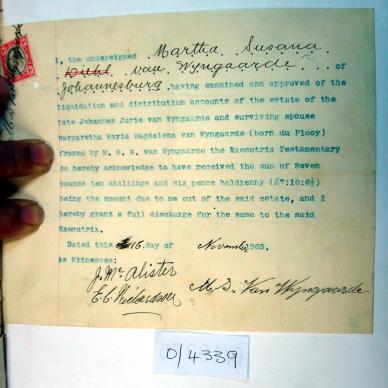 I, the undersigned Martha Susana
Diehl van Wyngaarde of
Johannesburg having examined and approved of the
liquidation and distribution accounts of the estate of the
late Johannes Jurie van Wyngaarde and surviving spouse
Margaretha Maria Magdalena van Wyngaarde (born du Plooy)
framed by M. M. M. van Wyngaarde the Executrix Testamentary
do hereby acknowledge to have received the sum of Seven
pounds ten shillings and six pence halfpenny (£7:10:6½)
being the amount due to me out of the said estate, and I
hereby grant a full discharge for the same to the said
Executrix.
Dated this 16 day of November 1903.
As Witnesses:
J. Mc Alister
E. C. Richardson
M. S. Van Wyngaarde
0/4339